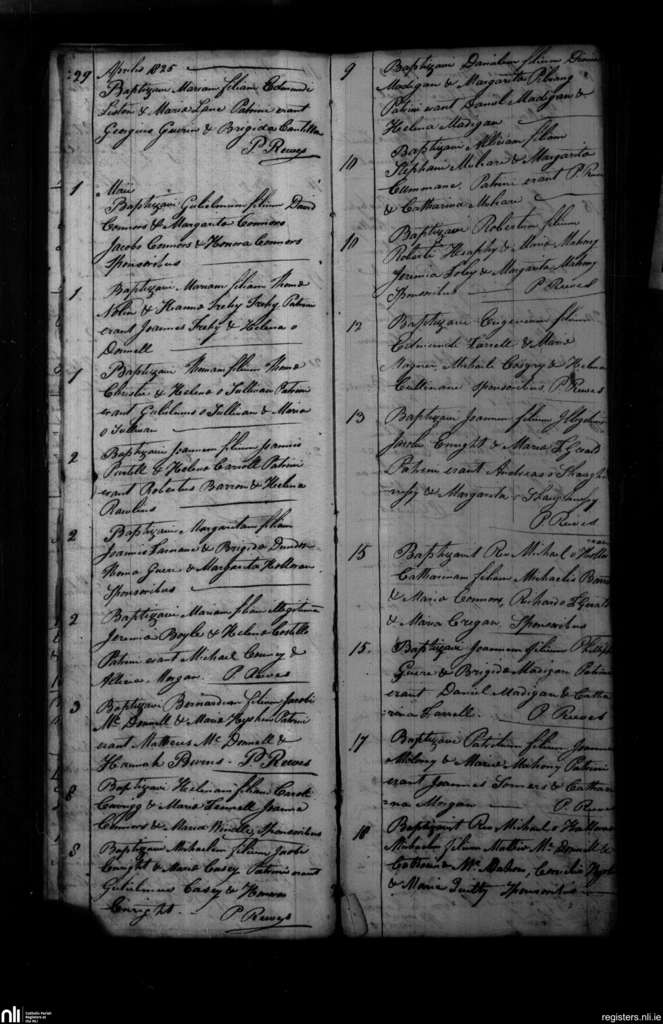 29 Aprilis 1825
Baptizavi Mariam filiam Edmundi
Liston & Maria Lane Patrini erant
Georgius Guerin & Brigida Cantillon
P Reeves
1 Maii
Baptizavi Gulielmum filium David
Connors & Margarita Connors
Jacobo Connors & Honora Connors
Sponsoribus
1 Baptizavi Mariam filiam Thoma
Nolan & Hanna Irehy Patrini
erant Joannes Irehy & Helena o
Donnell
1 Baptizavi Thomam filium Thoma
Christie & Helena o Sullivan Patrini
erant Gulielmus o Sullivan & Maria
o Sullivan
2 Baptizavi Joannem filium Joannis
Purtell & Helena Carroll Patrini
erant Robertus Barron & Helena
Rawlins
2 Baptizavi Margaritam filiam
Joannis & Brigida Dundon
Thoma Guere & Margarita Holloran
Sponsoribus
2 Baptizavi Mariam filiam
Jeremia Boyle & Helena Costello
Patrini erant Michael &
Morgan. P Reeves
3 Baptizavi Bernardum filium Jacobi
Mc Donnell & Maria Patrini
erant Matheus Mc Donnell &
Hannah Bevins. P Reeves
8 Baptizavi Helenam filiam Caroli
& Maria Joanna
Connors & Maria Windle, Sponsoribus
8 Baptizavi Michaelem filium Jacobi
Enright & Maria Casey Patrini erant
Gulielmus Casey & Honora
Enright. P Reeves
9 Baptizavi Danielem filium
Madigan & Margarita
Patrini erant Daniel Madigan &
Helena Madigan
10 Baptizavi filiam
Stephani Mihane & Margarita
Cummane. Patrini erant P Reeves
& Catharina Mihane
10 Baptizavi Robertum filium
Roberti & Maria Mahony
Jeremia Foley & Margarita Mahony
Sponsoribus P Reeves
12 Baptizavi Eugenium filium
Edmundi Farrell & Maria
Nagner, Michaele Cosgry & Helena
Cullinane Sponsoribus P Reeves
13 Baptizavi Joannem filium
Jacobi Enright & Maria FGerald
Patrini erant Andreas o Shaugh
nessy & Margarita o Shaughnessy
P Reeves
15 Baptizavit Rev Michael o Hallo
ran
Catharinam filiam Michaelis
& Maria Connors, Richardo FGerald
& Maria Cregan. Sponsoribus
15. Baptizavi Joannem filium Philippi
Guere & Brigida Madigan Patrini
erant Daniel Madigan & Catha
rina Farrell. P Reeves
17 Baptizavi Patritium filium Joannis
Molony & Maria Mahony Patrini
erant Joannes Somers & Catha
rina Morgan P. Reeves
18 Baptizavit Rev Michael o Halloran
Michaelem filium Mathei Mc Donnell &
Catharina Mc Mahon, Cornelio
& Maria Sponsoribus
nli
Catholic Parish
Registers at
the NLI
registers.nli.ie